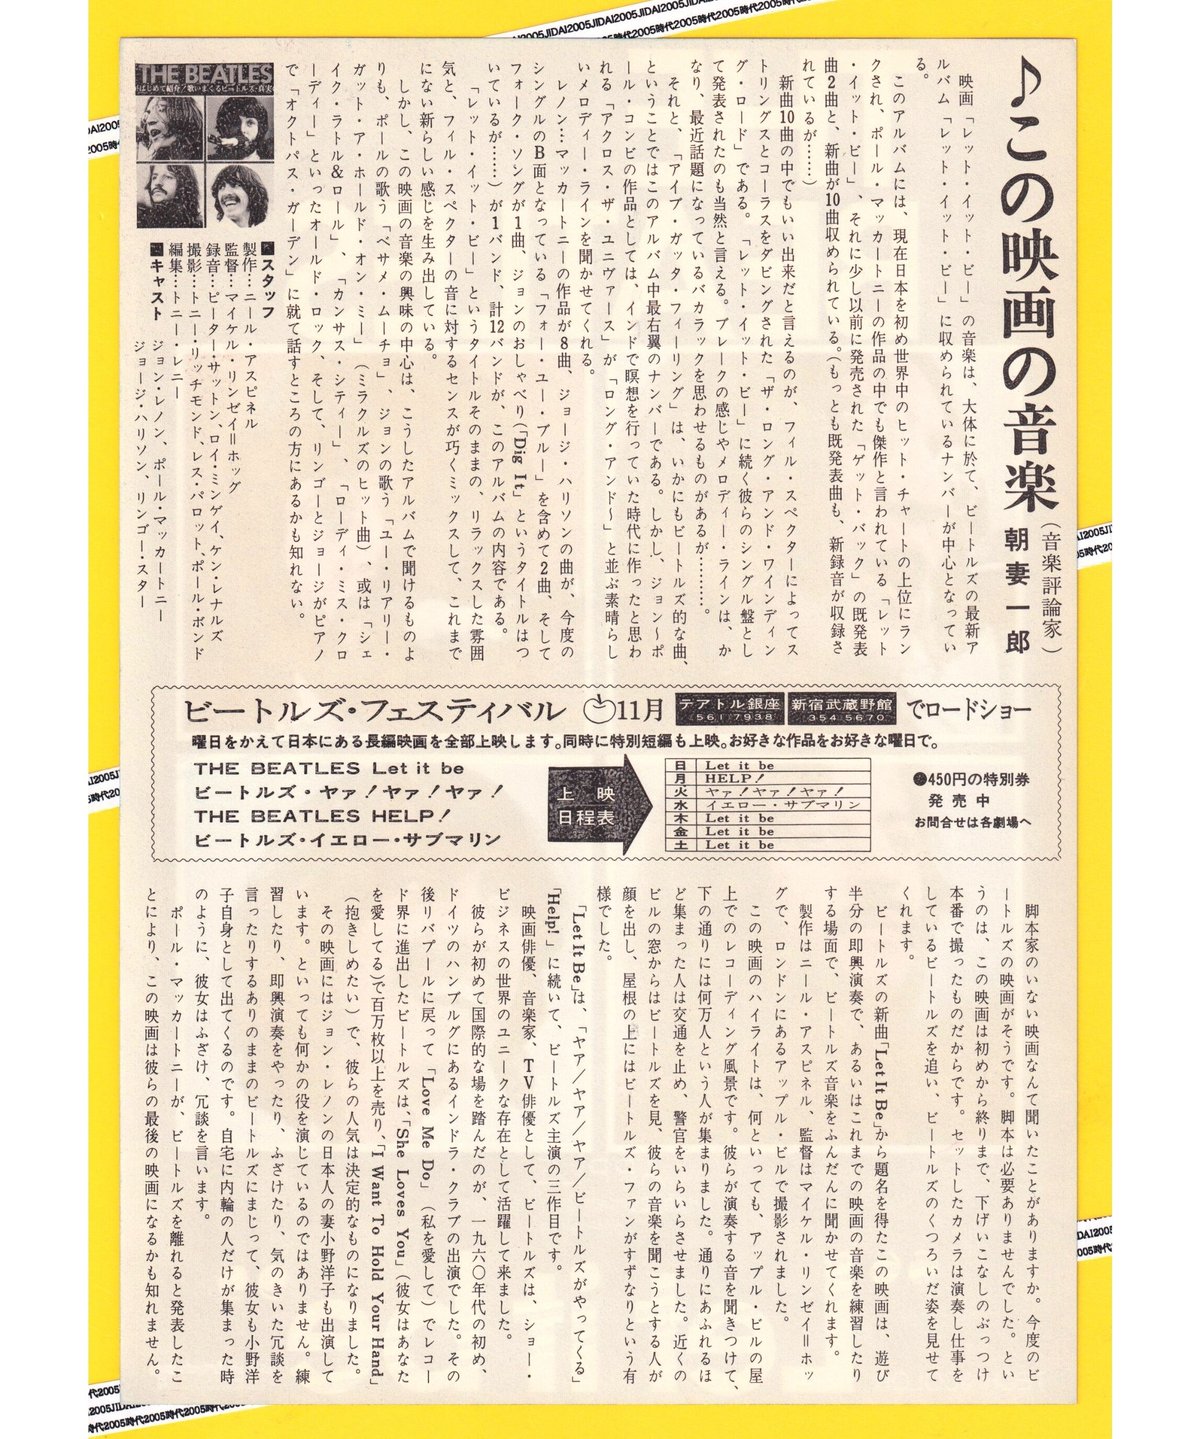 ♪この映画の音楽
(音楽評論家)
朝妻一郎
映画「レット・イット・ビー」の音楽は、大体に於て、ビートルズの最新ア
ルバム「レット・イット・ビー」に収められているナンバーが中心となってい
る。
このアルバムには、現在日本を初め世界中のヒット・チャートの上位にラン
クされ、ポール・マッカートニーの作品の中でも傑作と言われている「レット
・イット・ビー」、それに少し以前に発売された「ゲット・バック」の既発表
曲2曲と、新曲が10曲収められている。(もっとも既発表曲も、新録音が収録さ
れているが……)
新曲10曲の中でもいい出来だと言えるのが、フィル・スペクターによってス
トリングスとコーラスをダビングされた「ザ・ロング・アンド・ワインディン
グ・ロード」である。「レット・イット・ビー」に続く彼らのシングル盤とし
て発表されたのも当然と言える。ブレークの感じやメロディー・ラインは、か
なり、最近話題になっているバカラックを思わせるものがあるが………。
それと、「アイブ・ガッタ・フィーリング」は、いかにもビートルズ的な曲、
ということではこのアルバム中最右翼のナンバーである。しかし、ジョン～ポ
ール・コンビの作品としては、インドで瞑想を行っていた時代に作ったと思わ
れる「アクロス・ザ・ユニヴァース」が「ロング・アンド～」と並ぶ素晴らし
いメロディー・ラインを聞かせてくれる。
レノン…マッカートニーの作品が8曲、ジョージ・ハリソンの曲が、今度の
シングルのB面となっている「フォー・ユー・ブルー」を含めて2曲、そして
フォーク・ソングが1曲、ジョンのおしゃべり(「Dig It」というタイトルはつ
いているが……)が1バンド、計12バンドが、このアルバムの内容である。
「レット・イット・ビー」というタイトルそのままの、リラックスした雰囲
気と、フィル・スペクターの音に対するセンスが巧くミックスして、これまで
にない新らしい感じを生み出している。
しかし、この映画の音楽の興味の中心は、こうしたアルバムで聞けるものよ
りも、ポールの歌う「ベサメ・ムーチョ」、ジョンの歌う「ユー・リアリー・
ガット・ア・ホールド・オン・ミー」(ミラクルズのヒット曲)、或は「シェ
イク・ラトル&ロール」、「カンサス・シティー」、「ローディ・ミス・クロ
ーディー」といったオールド・ロック、そして、リンゴーとジョージがピアノ
で「オクトパス・ガーデン」に就て話すところの方にあるかも知れない。
THE BEATLES
はじめて紹介!歌いまくるビートルズ・真実
■スタッフ
製作…ニール・アスピネル
監督…マイケル・リンゼイ＝ホッグ
録音…ピーター・サットン、ロイ・ミンゲイ、ケン・レナルズ
撮影…トニー・リッチモンド、レス・パロット、ポール・ボンド
編集…トニー・レニー
■キャスト
ジョン・レノン、ポール・マッカートニー
ジョージ・ハリソン、リンゴー・スター
ビートルズ・フェスティバル 11月 テアトル銀座 561 7938 新宿武蔵野館 354 5670 でロードショー
曜日をかえて日本にある長編映画を全部上映します。同時に特別短編も上映。お好きな作品をお好きな曜日で。
THE BEATLES Let it be
ビートルズ・ヤァ!ヤァ!ヤァ!
THE BEATLES HELP!
ビートルズ・イエロー・サブマリン
上映
日程表
日 Let it be
月 HELP!
火 ヤァ!ヤァ!ヤァ!
水 イエロー・サブマリン
木 Let it be
金 Let it be
土 Let it be
●450円の特別券
発売中
お問合せは各劇場へ
脚本家のいない映画なんて聞いたことがありますか。今度のビ
ートルズの映画がそうです。脚本は必要ありませんでした。とい
うのは、この映画は初めから終りまで、下げいこなしのぶっつけ
本番で撮ったものだからです。セットしたカメラは演奏し仕事を
しているビートルズを追い、ビートルズのくつろいだ姿を見せて
くれます。
ビートルズの新曲「Let It Be」から題名を得たこの映画は、遊び
半分の即興演奏で、あるいはこれまでの映画の音楽を練習したり
する場面で、ビートルズ音楽をふんだんに聞かせてくれます。
製作はニール・アスピネル、監督はマイケル・リンゼイ＝ホッ
グで、ロンドンにあるアップル・ビルで撮影されました。
この映画のハイライトは、何といっても、アップル・ビルの屋
上でのレコーディング風景です。彼らが演奏する音を聞きつけて、
下の通りには何万人という人が集まりました。通りにあふれるほ
ど集まった人は交通を止め、警官をいらいらさせました。近くの
ビルの窓からはビートルズを見、彼らの音楽を聞こうとする人が
顔を出し、屋根の上にはビートルズ・ファンがすずなりという有
様でした。
「Let It Be」は、「ヤア／ヤア／ヤア／ビートルズがやってくる」
「Help!」に続いて、ビートルズ主演の三作目です。
映画俳優、音楽家、TV俳優として、ビートルズは、ショー・
ビジネスの世界のユニークな存在として活躍して来ました。
彼らが初めて国際的な場を踏んだのが、一九六〇年代の初め、
ドイツのハンブルグにあるインドラ・クラブの出演でした。その
後リバプールに戻って「Love Me Do」(私を愛して)でレコー
ド界に進出したビートルズは、「She Loves You」(彼女はあなた
を愛してる)で百万枚以上を売り、「I Want To Hold Your Hand」
(抱きしめたい)で、彼らの人気は決定的なものになりました。
その映画にはジョン・レノンの日本人の妻小野洋子も出演して
います。といっても何かの役を演じているのではありません。練
習したり、即興演奏をやったり、ふざけたり、気のきいた冗談を
言ったりするありのままのビートルズにまじって、彼女も小野洋
子自身として出てくるのです。自宅に内輪の人だけが集まった時
のように、彼女はふざけ、冗談を言います。
ポール・マッカートニーが、ビートルズを離れると発表したこ
とにより、この映画は彼らの最後の映画になるかも知れません。